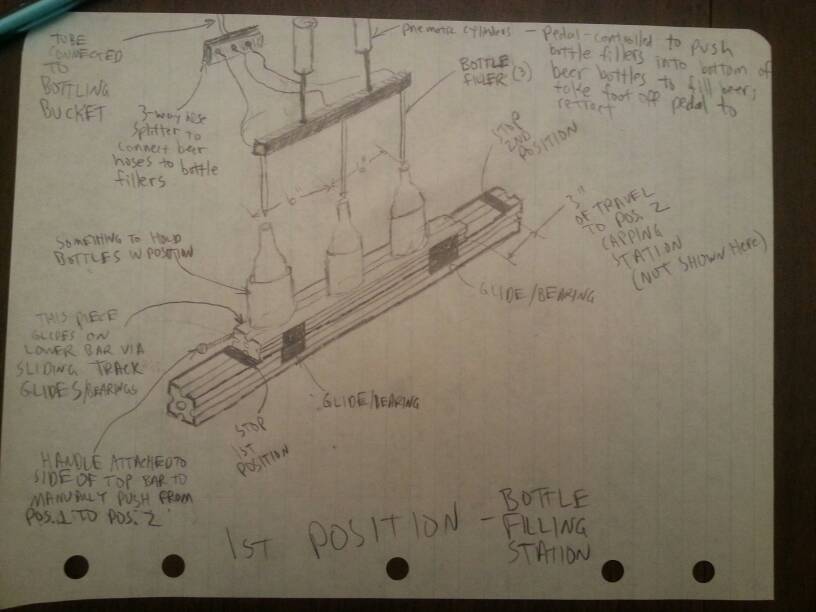 TUBE
CONNECTED
TO
BOTTLING
BUCKET
3-way hose
splitter to
connect beer
hoses to bottle
fillers
pnematic cylinders - Pedal-controlled to push
bottle fillers into bottom of
beer bottles to fill beer;
take foot off pedal to
retract
BOTTLE
FILLER (3)
STOP
2ND
POSITION
6"
6"
3"
OF TRAVEL
TO POS. 2
CAPPING
STATION
(NOT SHOWN Here)
SOMETHING TO HOLD
BOTTLES IN POSITION
GLIDE/BEARING
THIS PIECE
GLIDES ON
LOWER BAR VIA
SLIDING TRACK
GLIDES/BEARINGS
GLIDE/BEARING
STOP
1ST
POSITION
HANDLE ATTACHED TO
SIDE OF TOP BAR TO
MANUALLY PUSH FROM
POS. 1 TO POS. 2
1ST POSITION - BOTTLE
FILLING
STATION